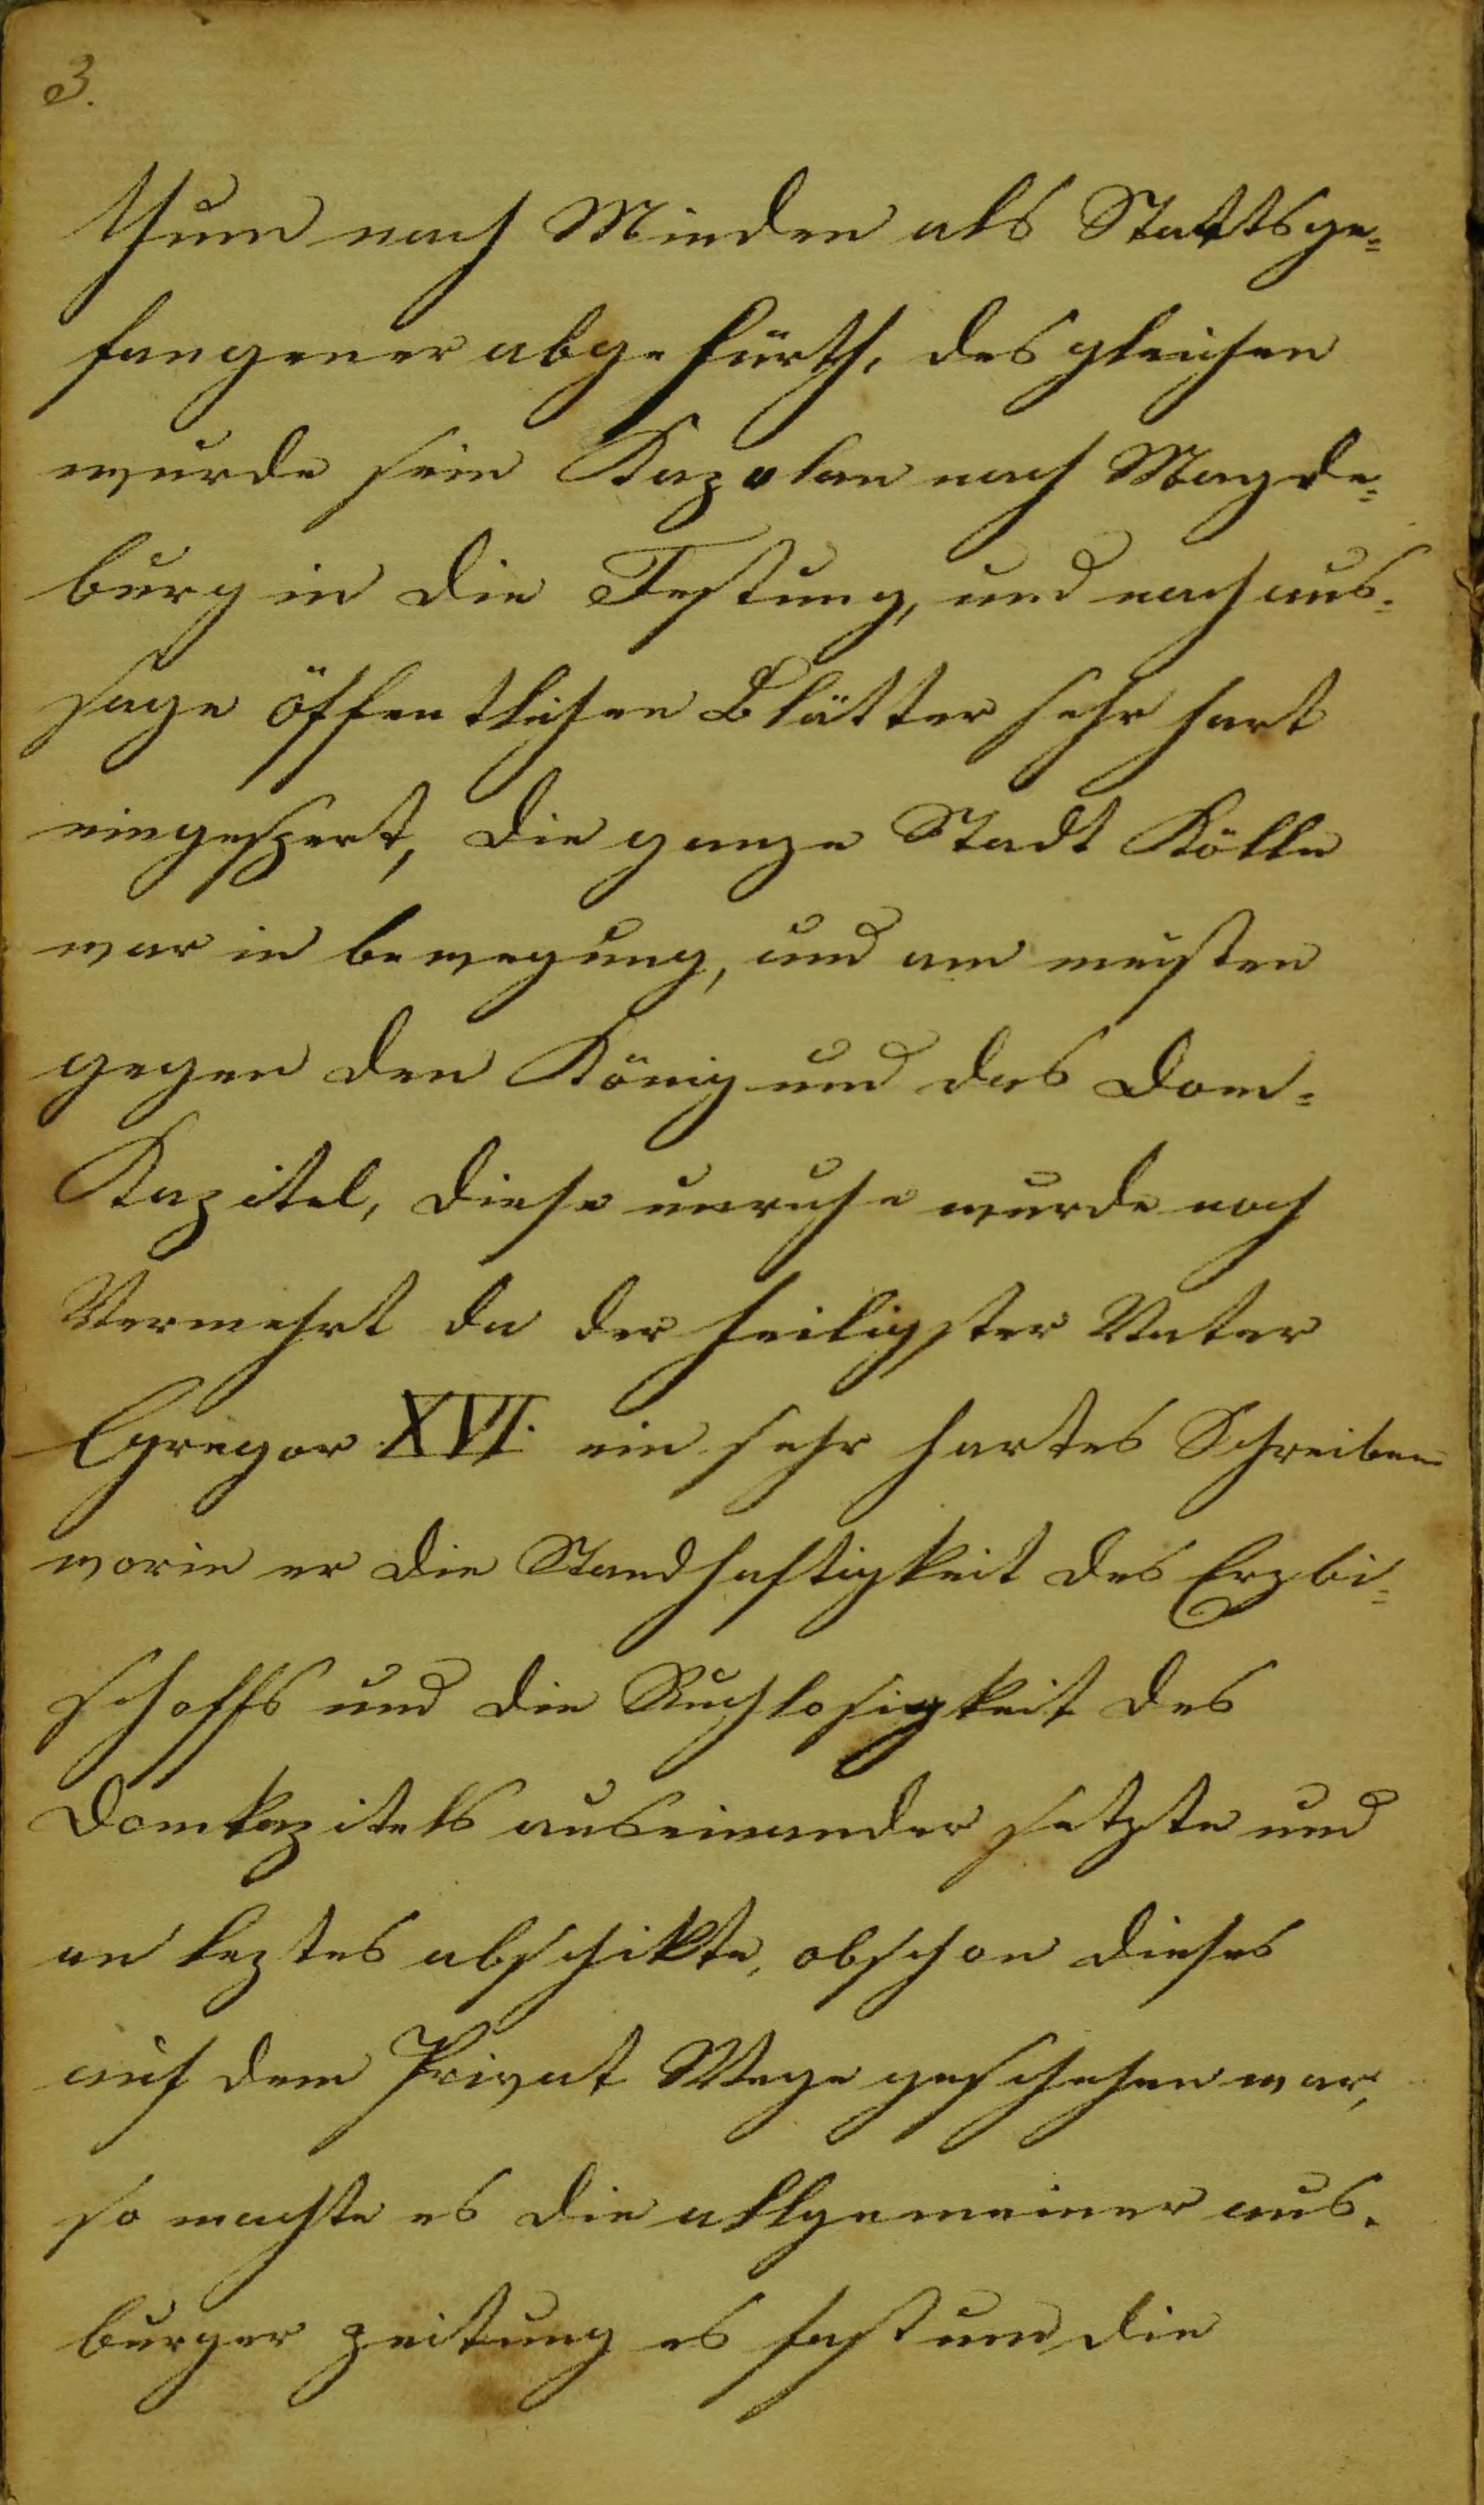 3.
thum nach Minden als Stattsge=
fangener abgefürth, des gleichen
wurde sein Kapolan nach Magde=
burg in die Festung, und nach aus=
sage öffentlichen Blätter sehr hart
eingespert, die ganze Stadt Kölln
war in bewegung, und am meisten
gegen den König und das Dom=
Kapitel, diese unruhe wurde noch
Vermehrt da der heiligster Vater
Gregor XVI. ein sehr hartes Schreiben
worin er die Standhaftigkeit des Erzbi=
schoffs und die Ruchlosigkeit des
Domkapitels auseinander setzte und
an leztes abschikte, obschon dieses
auf dem Privat Wege geschehen war,
so machte es die allgemeiner aus=
burger zeitung es fast um die